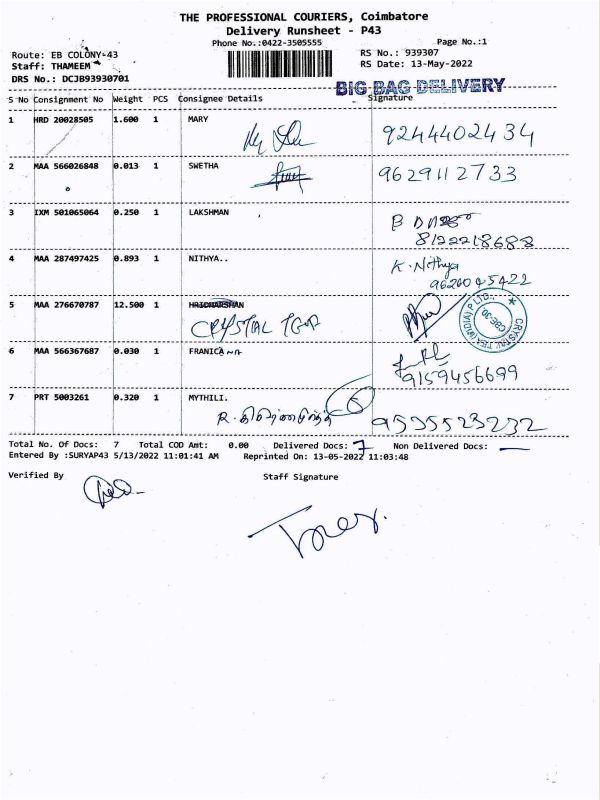 THE PROFESSIONAL COURIERS, Coimbatore
Delivery Runsheet - P43
Phone No.:0422-3505555 Page No.:1
Route: EB COLONY-43 RS No.: 939307
Staff: THAMEEM RS Date: 13-May-2022
DRS No.: DCJB93930701
BIG BAG DELIVERY
S No Consignment No Weight PCS Consignee Details Signature
1 HRD 20028505 1.600 1 MARY
9244402434
2 MAA 566026848 0.013 1 SWETHA
9629112733
3 IXM 501065064 0.250 1 LAKSHMAN
8122218688
4 MAA 287497425 0.893 1 NITHYA..
K. Nithya
9626045422
5 MAA 276670787 12.500 1 HRIDHARSHAN
CRYSTAL TEA
CRYSTAL TEA (INDIA) P LTD.,
CBE-30
6 MAA 566367687 0.030 1 FRANICANA
9159456699
7 PRT 5003261 0.320 1 MYTHILI.
9535523232
Total No. Of Docs: 7 Total COD Amt: 0.00 Delivered Docs: 7 Non Delivered Docs: —
Entered By :SURYAP43 5/13/2022 11:01:41 AM Reprinted On: 13-05-2022 11:03:48
Verified By Staff Signature